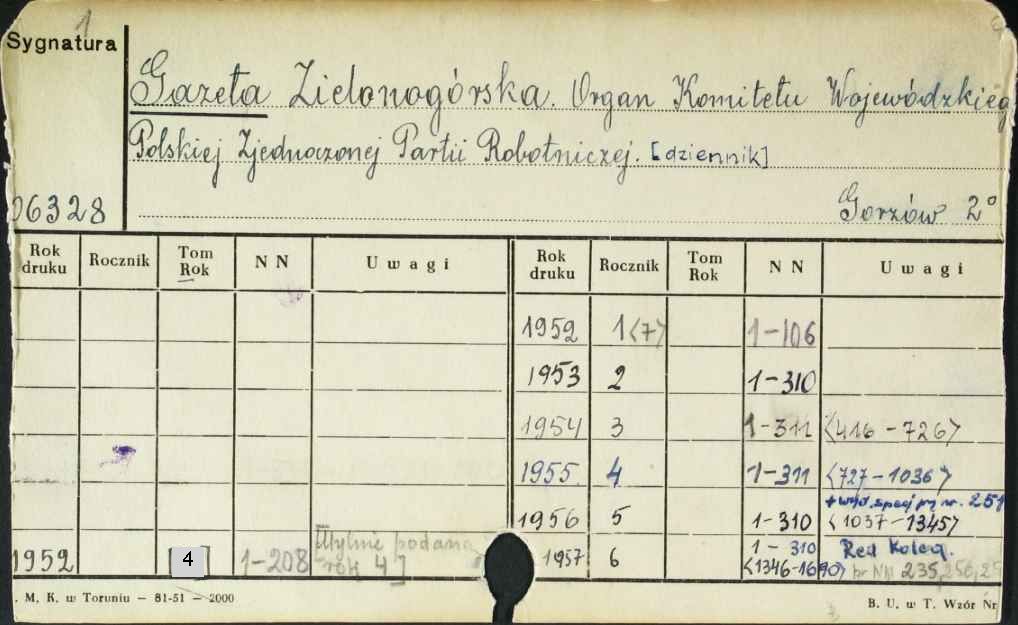 1
Sygnatura
Gazeta Zielonogórska. Organ Komitetu Wojewódzkieg
Polskiej Zjednoczonej Partii Robotniczej. [dziennik]
06328
Gorzów 2°
Rok druku Rocznik Tom Rok NN Uwagi Rok druku Rocznik Tom Rok NN Uwagi
1952 1<7> 1-106
1953 2 1-310
1954 3 1-311 <416-726>
1955. 4 1-311 <727-1036>
nr. 251
1956 5 1-310 <1037-1345>
1952 [4] 1-208 Mylnie podano rok 4] 1957 6 1-310 <1346-1690> Red Koleg. NN 235, 256, 25
. M. K. w Toruniu — 81-51 — 2000
B. U. w T. Wzór Nr